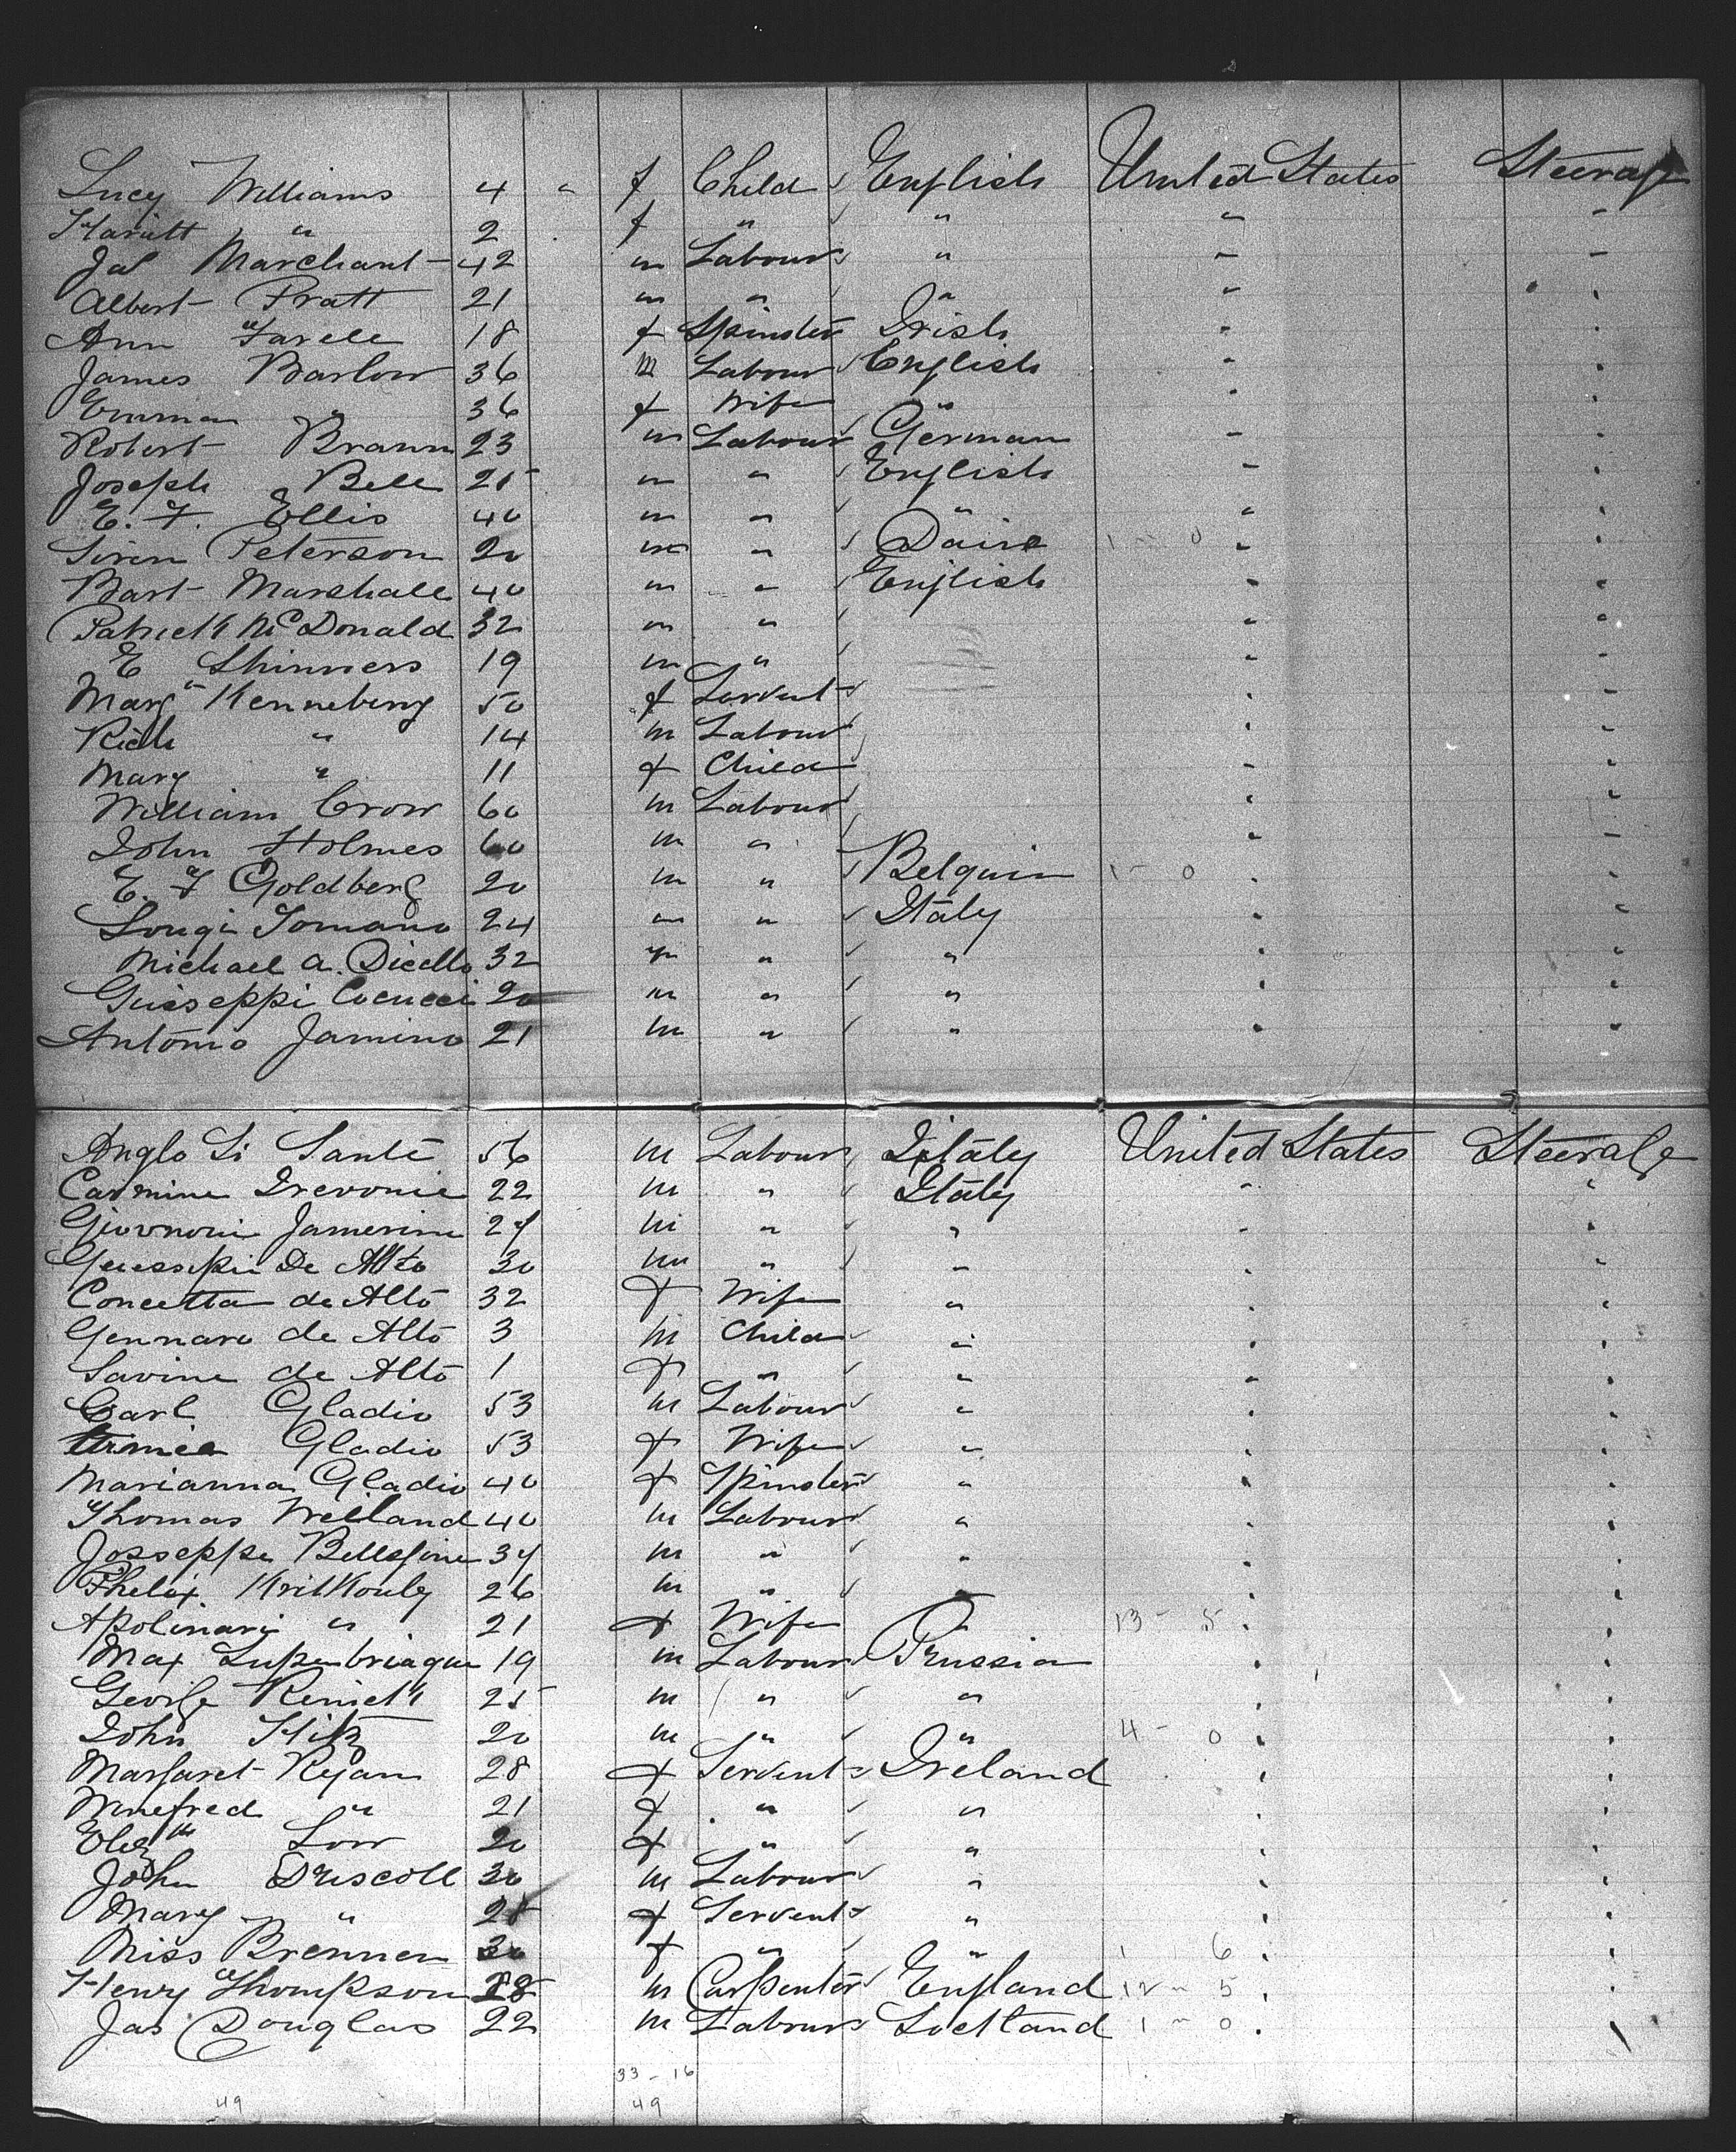 Lucy Williams 4 " f Child English United States Steerage
Hariett " 2 f " " " "
Jas Marchant 42 m Labour " " "
Albert Pratt 21 m " " " "
Ann Farell 18 f Spinster Irish " "
James Barlow 36 m Labour English " "
Emma " 36 f Wife " " "
Robert Braun 23 m Labour German " "
Joseph Bell 25 m " English " "
E. F. Ellis 40 m " " " "
Peterson 20 m " Daine 1 - 0 " "
Bart Marshall 40 m " English " "
Patrick McDonald 32 m " " "
E Shinners 19 m " " "
Marg Kenneberry 50 f Servent " "
Rich " 14 m Labour " "
Mary " 11 f Child " "
William Crow 60 m Labour " "
John Holmes 60 m " " "
E. F Goldberg 20 m " Belguim 1 - 0 " "
Lougi Tomano 24 m " Italy " "
Michael A. Dicello 32 m " " " "
Guiseppi Cocucci 20 m " " " "
Antonio Jamino 21 m " " " "
Anglo Li Santi 56 m Labour Italy United States Steerage
Carmine 22 m " Italy " "
Jamerini 27 m " " " "
De Alto 30 m " " " "
Concetta de Alto 32 f Wife " " "
Gennaro de Alto 3 m Child " " "
Savine de Alto 1 f " " " "
Carl Gladio 53 m Labour " " "
Gladio 53 f Wife " " "
Marianna Gladio 40 f Spinster " " "
Thomas Welland 40 m Labour " " "
Josseppe 34 m " " " "
Phelix 26 m " " " "
Apolinary " 21 f Wife " 13 - 5 " "
Max 19 m Labour Prussia " "
George 25 m " " " "
John 20 m " " 4 - 0 " "
Margaret Ryan 28 f Servent Ireland " "
Winefred " 21 f " " " "
Elizth Low 20 f " " " "
John Driscoll 30 m Labour " " "
Mary " 28 f Servent " " "
Miss Brennen 30 f " " 1 6 " "
Henry Thompson 28 m Carpenter England 12 - 5 " "
Jas Douglas 22 m Labour Scotland 1 - 0 " "
33 - 16
49 49